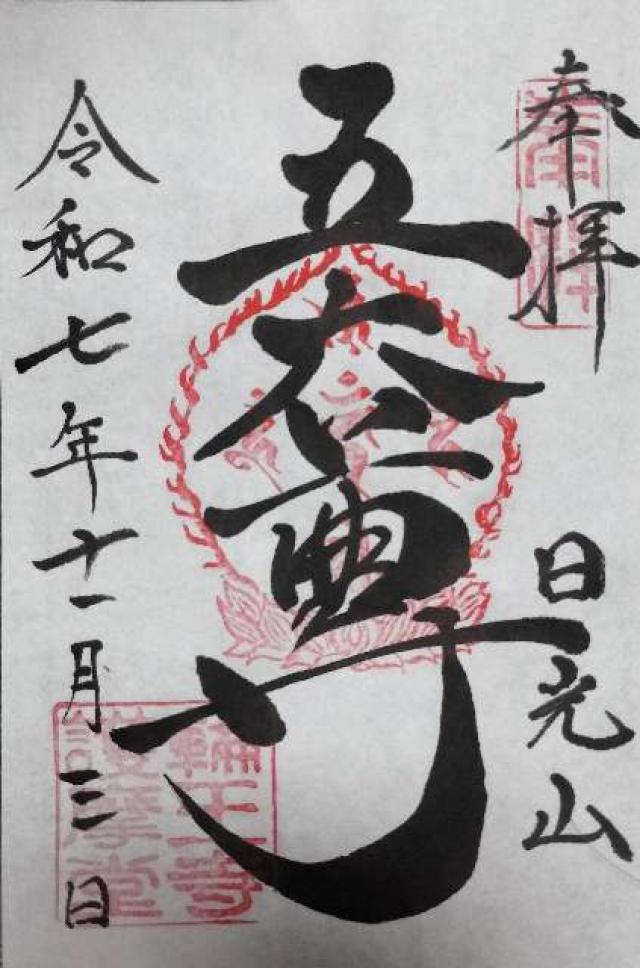 奉拝
日光山
五大尊
令和七年十一月三日
輪王寺
護摩堂